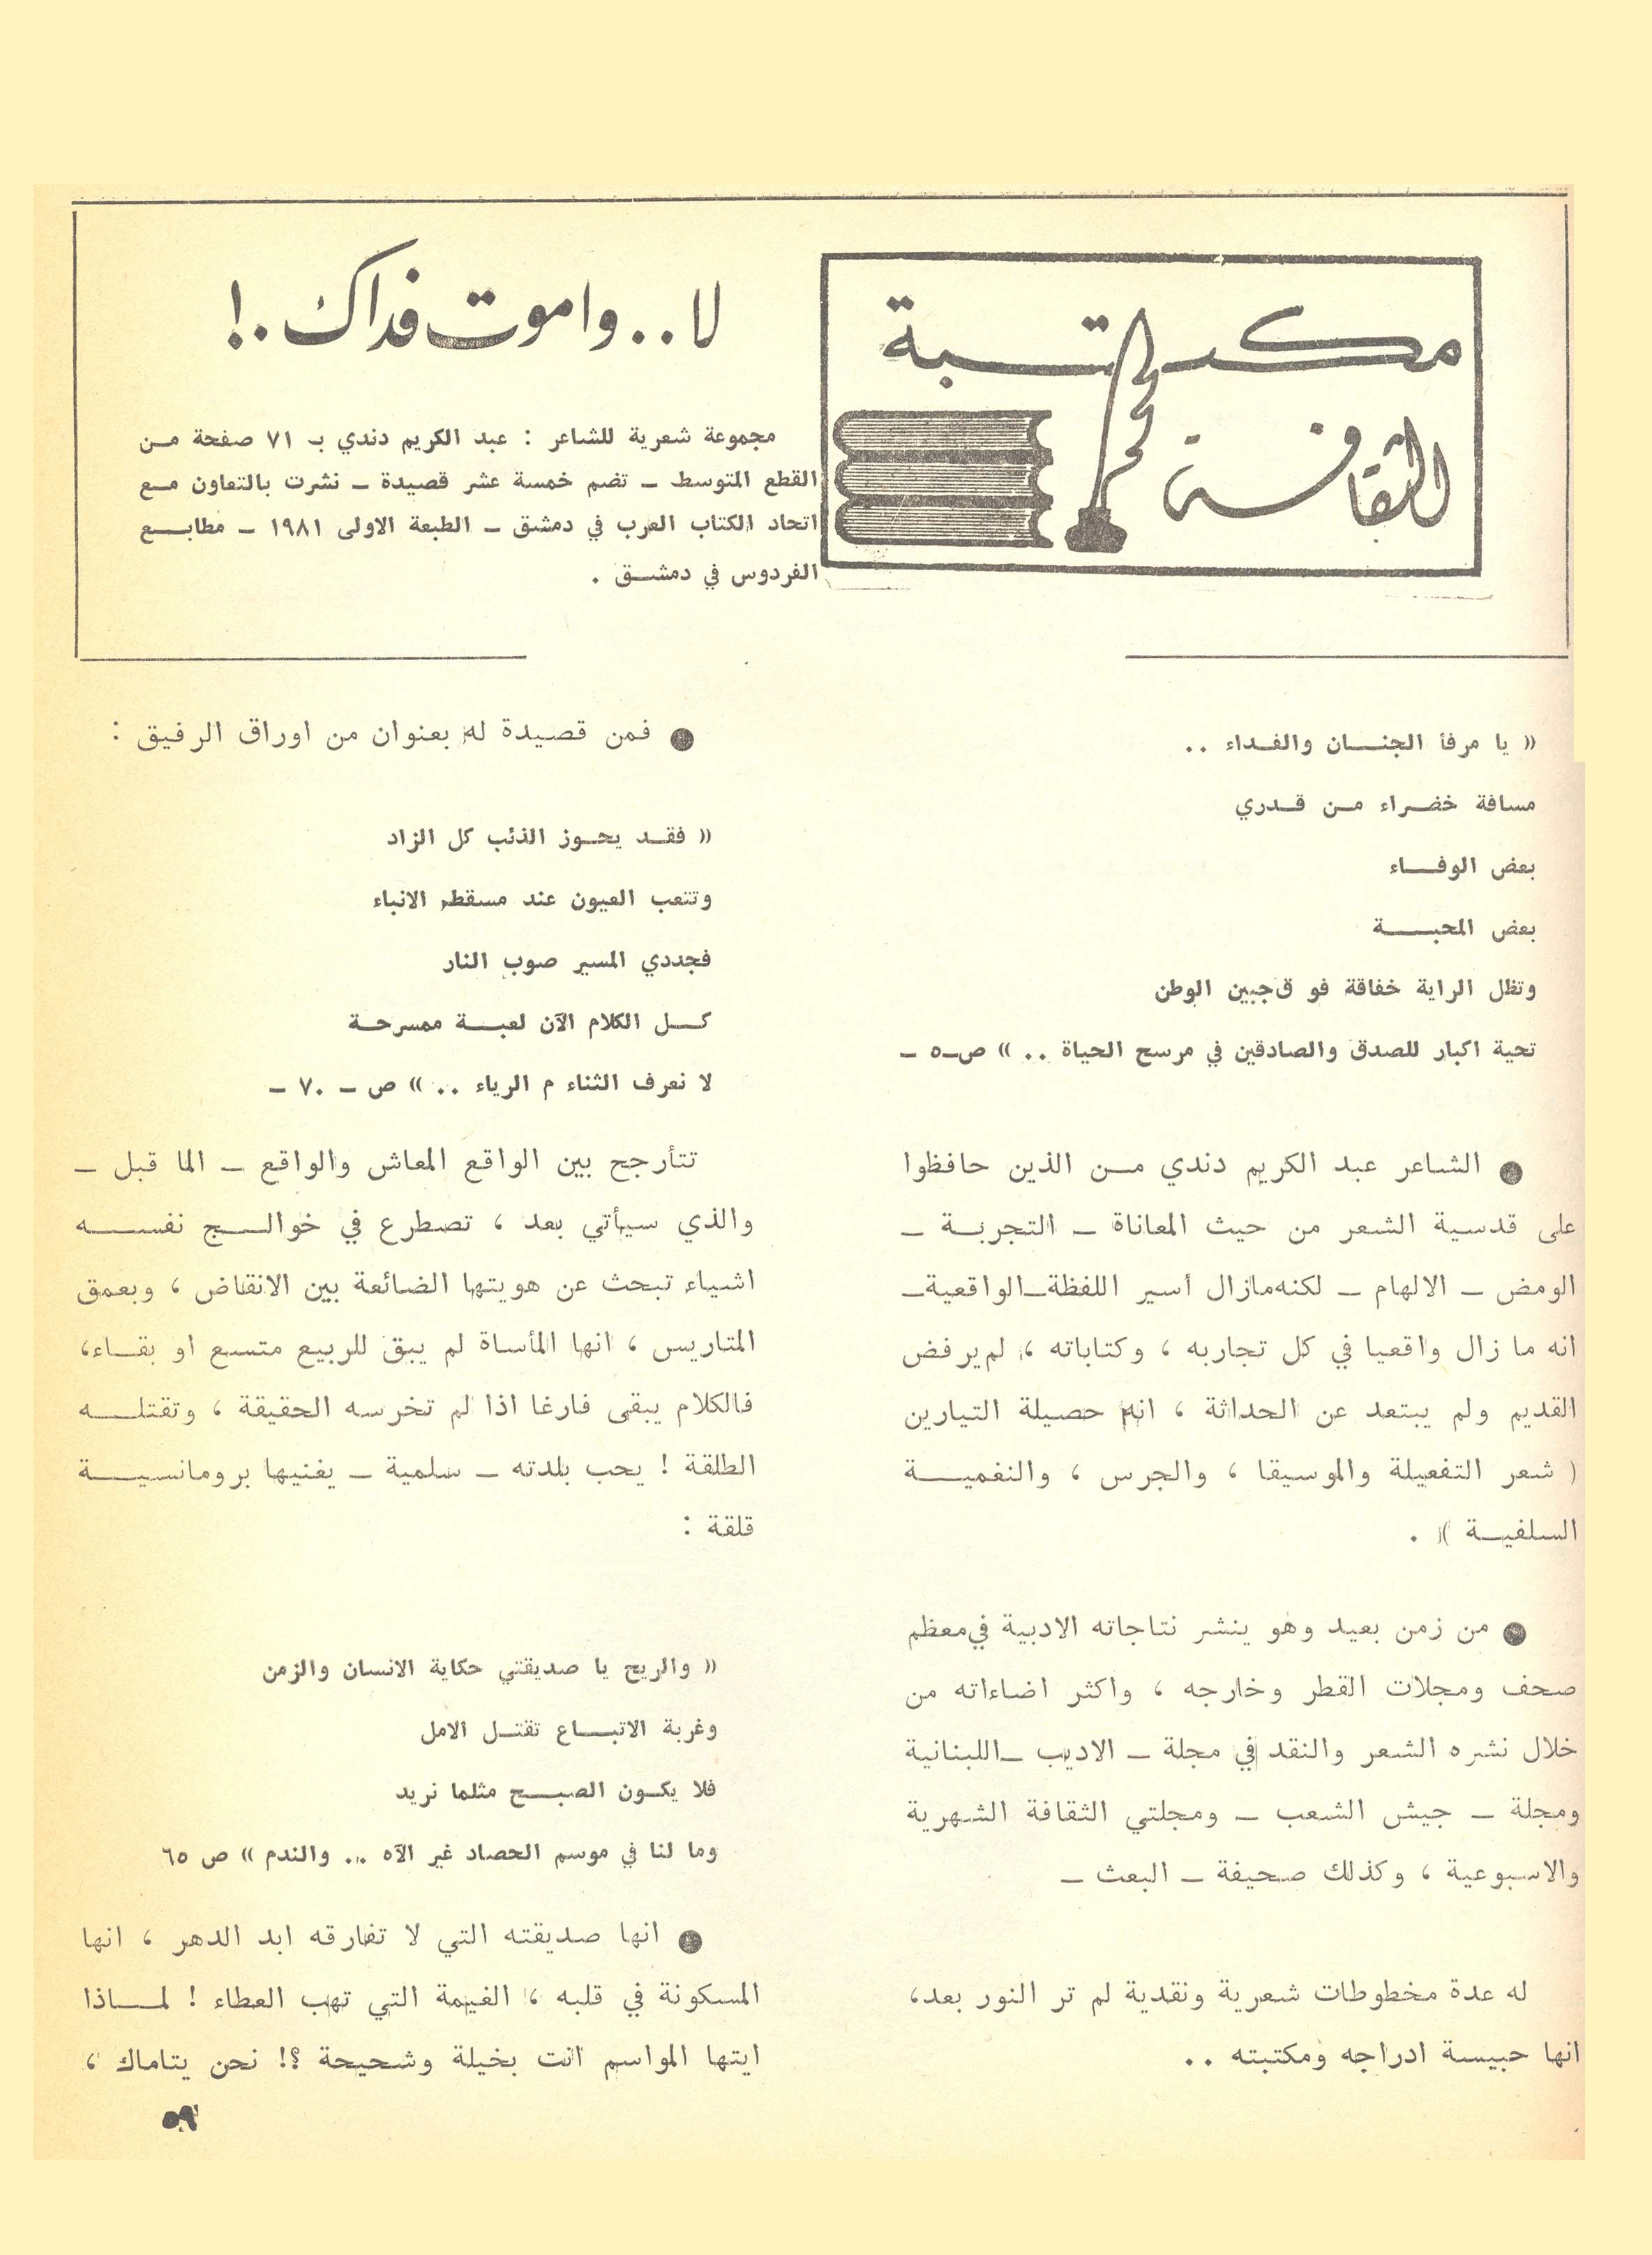 مكتبة
الثقافة
لا . . واموت فداك . !
مجموعة شعرية للشاعر : عبد الكريم دندي بـ ٧١ صفحة من
القطع المتوسط ــ تضم خمسة عشر قصيدة ــ نشرت بالتعاون مع
اتحاد الكتاب العرب في دمشق ــ الطبعة الاولى ١٩٨١ ــ مطابع
الفردوس في دمشق .
« يا مرفأ الجنان والفداء . .
مسافة خضراء من قدري
بعض الوفاء
بعض المحبة
وتظل الراية خفاقة فو ق جبين الوطن
تحية اكبار للصدق والصادقين في مرسح الحياة . . » ص ــ ٥ ــ
● الشاعر عبد الكريم دندي من الذين حافظوا
على قدسية الشعر من حيث المعاناة ــ التجربة ــ
الومض ــ الالهام ــ لكنه مازال أسير اللفظة ــ الواقعية ــ
انه ما زال واقعيا في كل تجاربه ، وكتاباته ، لم يرفض
القديم ولم يبتعد عن الحداثة ، انه حصيلة التيارين
( شعر التفعيلة والموسيقا ، والجرس ، والنغمية
السلفية ) .
● من زمن بعيد وهو ينشر نتاجاته الادبية في معظم
صحف ومجلات القطر وخارجه ، واكثر اضاءاته من
خلال نشره الشعر والنقد في مجلة ــ الاديب ــ اللبنانية
ومجلة ــ جيش الشعب ــ ومجلتي الثقافة الشهرية
والاسبوعية ، وكذلك صحيفة ــ البعث ــ
له عدة مخطوطات شعرية ونقدية لم تر النور بعد،
انها حبيسة ادراجه ومكتبته . .
● فمن قصيدة له بعنوان من اوراق الرفيق :
« فقد يحوز الذئب كل الزاد
وتتعب العيون عند مسقط الانباء
فجددي المسير صوب النار
كل الكلام الآن لعبة ممسرحة
لا نعرف الثناء م الرياء . . » ص ــ ٧٠ ــ
تتأرجح بين الواقع المعاش والواقع ــ الما قبل ــ
والذي سيأتي بعد ، تصطرع في خوالج نفسه
اشياء تبحث عن هويتها الضائعة بين الانقاض ، وبعمق
المتاريس ، انها المأساة لم يبق للربيع متسع او بقاء،
فالكلام يبقى فارغا اذا لم تخرسه الحقيقة ، وتقتله
الطلقة ! يحب بلدته ــ سلمية ــ يغنيها برومانسية
قلقة :
« والريح يا صديقتي حكاية الانسان والزمن
وغربة الاتباع تقتل الامل
فلا يكون الصبح مثلما نريد
وما لنا في موسم الحصاد غير الآه . . والندم » ص ٦٥
● انها صديقته التي لا تفارقه ابد الدهر ، انها
المسكونة في قلبه ، الغيمة التي تهب العطاء ! لماذا
ايتها المواسم انت بخيلة وشحيحة ؟! نحن يتاماك ،
٥٩